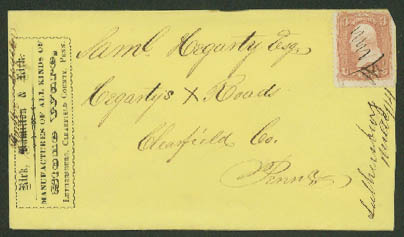 Kirk, Hamilton & Kirk,
MANUFACTURERS OF ALL KINDS OF
Stone Ware,
LUTHERSBURG, CLEARFIELD COUNTY, PENN.
Saml Hegarty Esq.
Hegartys X Roads
Clearfield Co.
Penna
Luthersburg
3
3